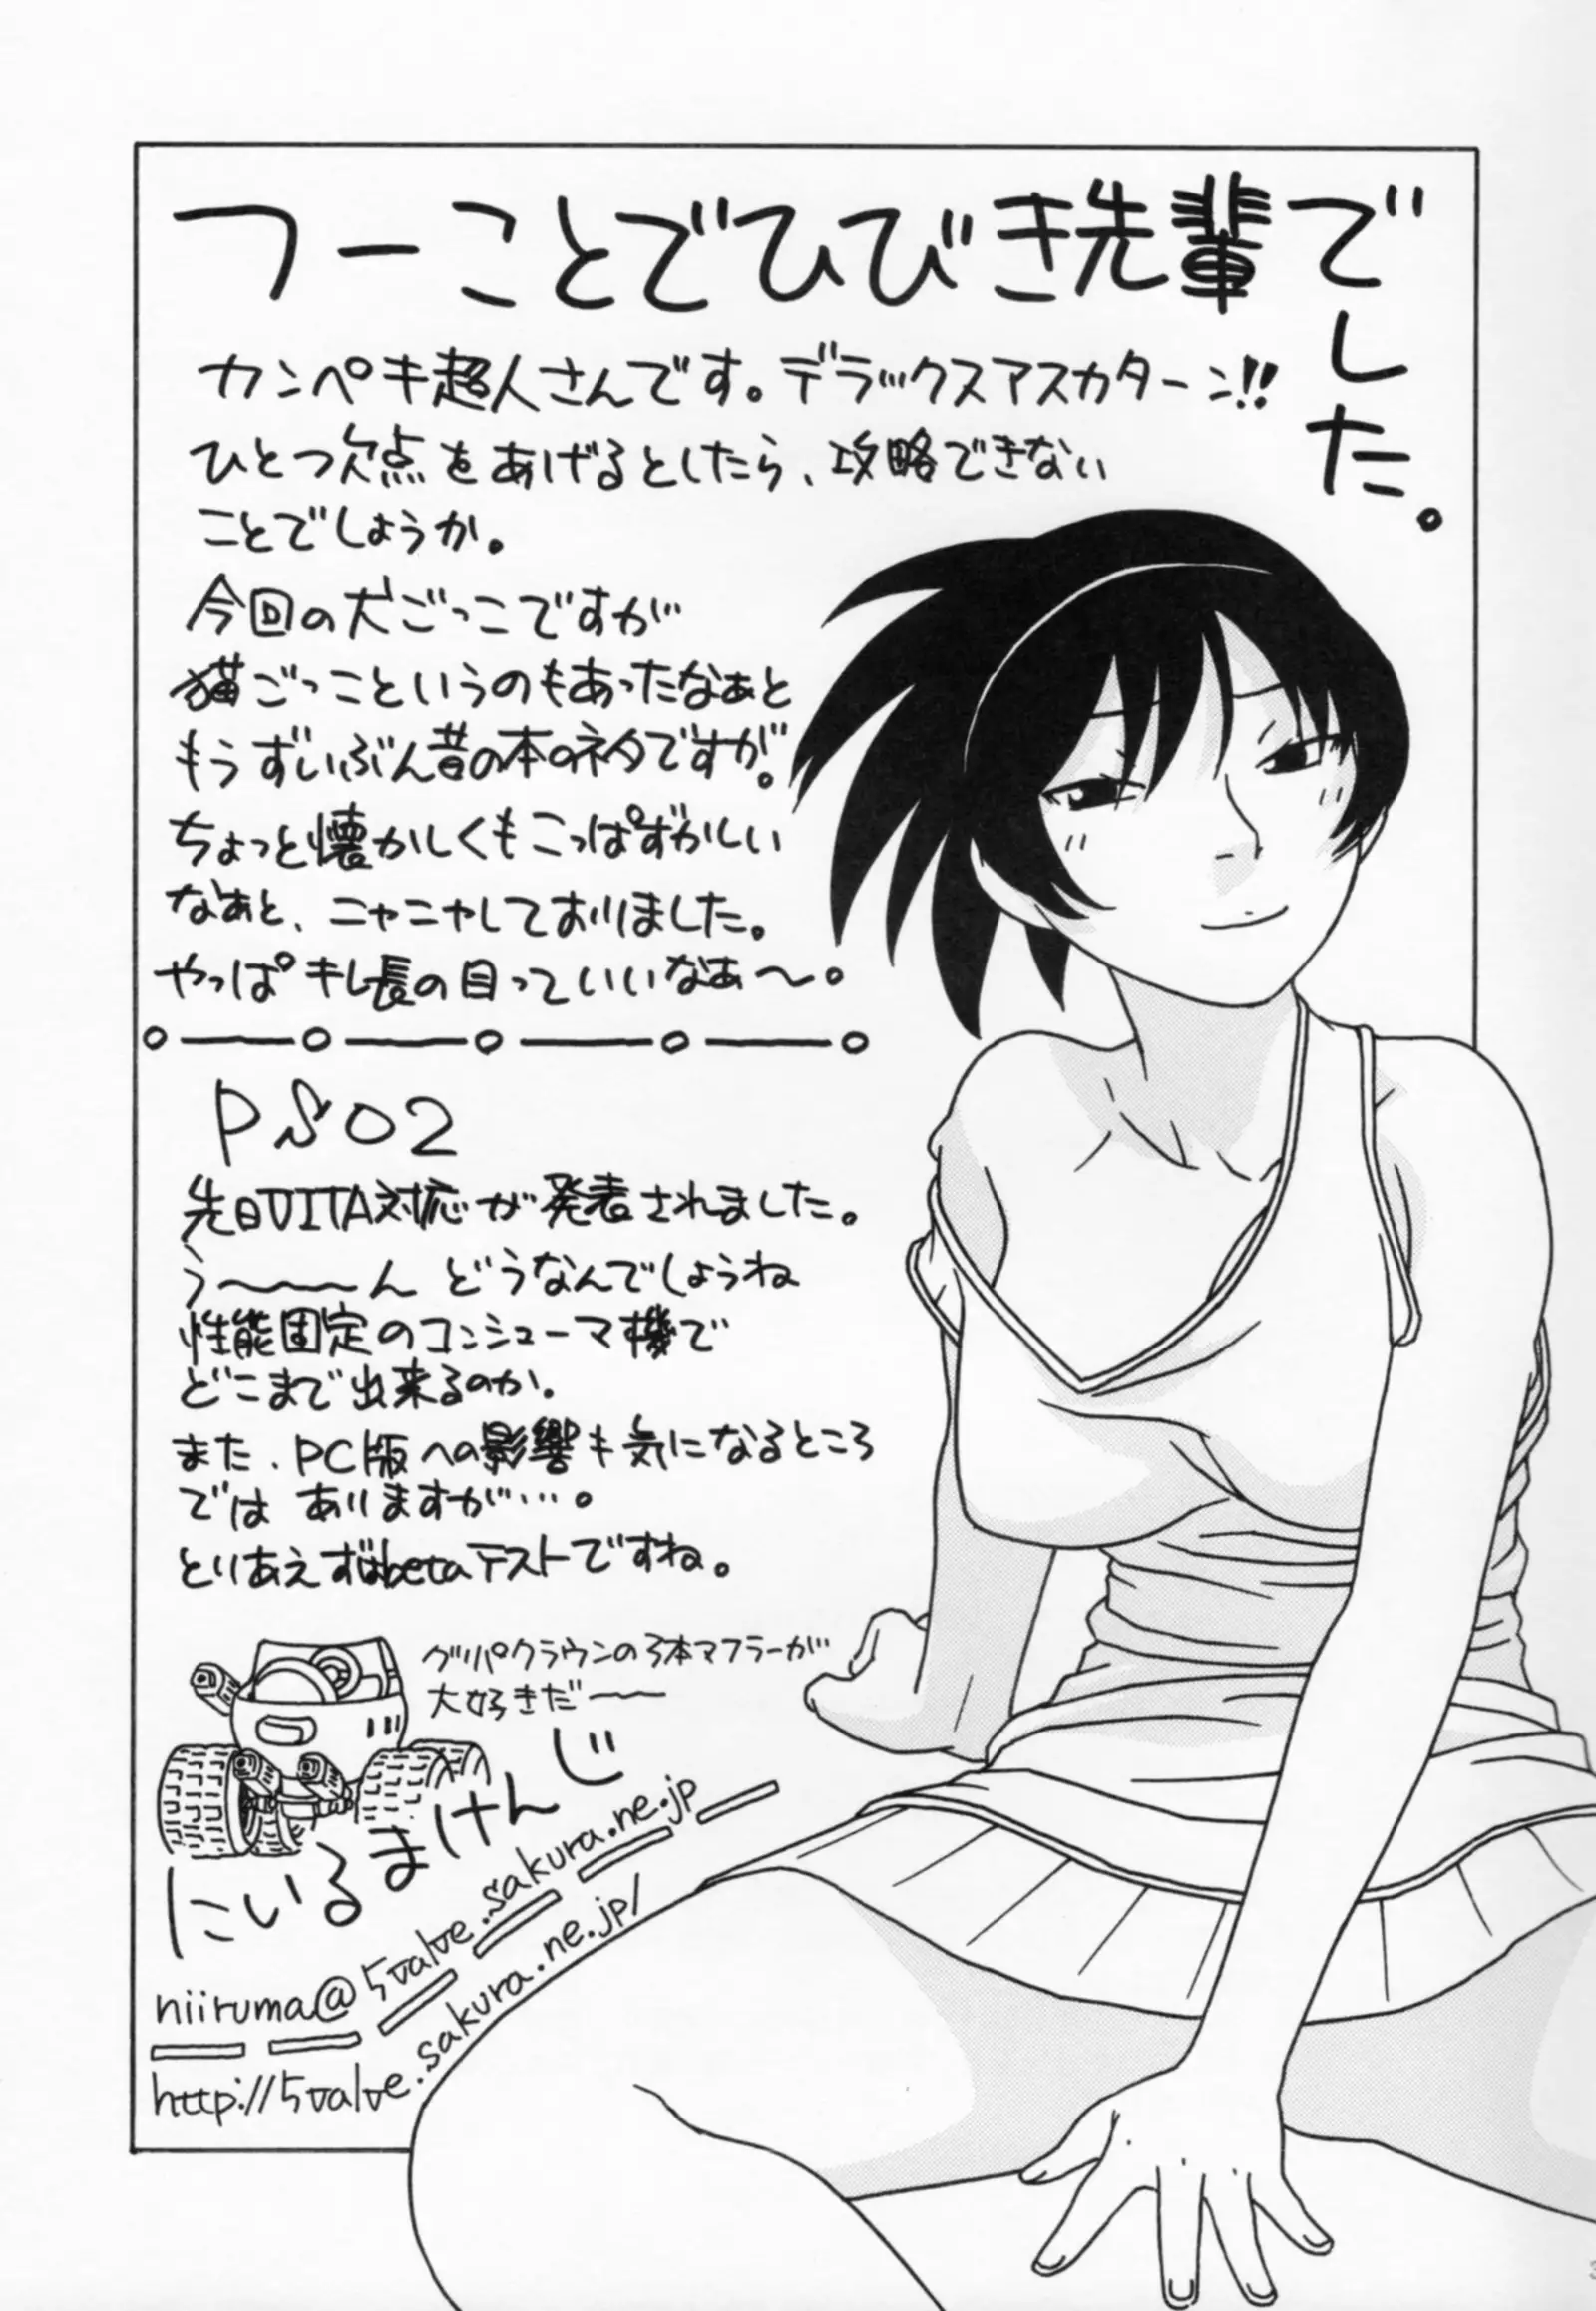 つーことでひびき先輩でした。
カンペキ超人さんです。デラックスアスカターン!!
ひとつ欠点をあげるとしたら、攻略できない
ことでしょうか。
今回の犬ごっこですが
猫ごっこというのもあったなぁと
もうずいぶん昔の本のネタですが。
ちょっと懐かしくもこっぱずかしい
なぁと、ニヤニヤしておりました。
やっぱキレ長の目っていいなぁ〜。
PSO2
先日VITA対応が発表されました。
う〜〜〜ん どうなんでしょうね
性能固定のコンシューマ機で
どこまで出来るのか。
また、PC版への影響も気になるところ
ではありますが…。
とりあえずはbetaテストですね。
グリパクラウンの3本マフラーが
大好きだ〜〜
にいるまけんじ
niiruma@5valve.sakura.ne.jp
http://5valve.sakura.ne.jp/